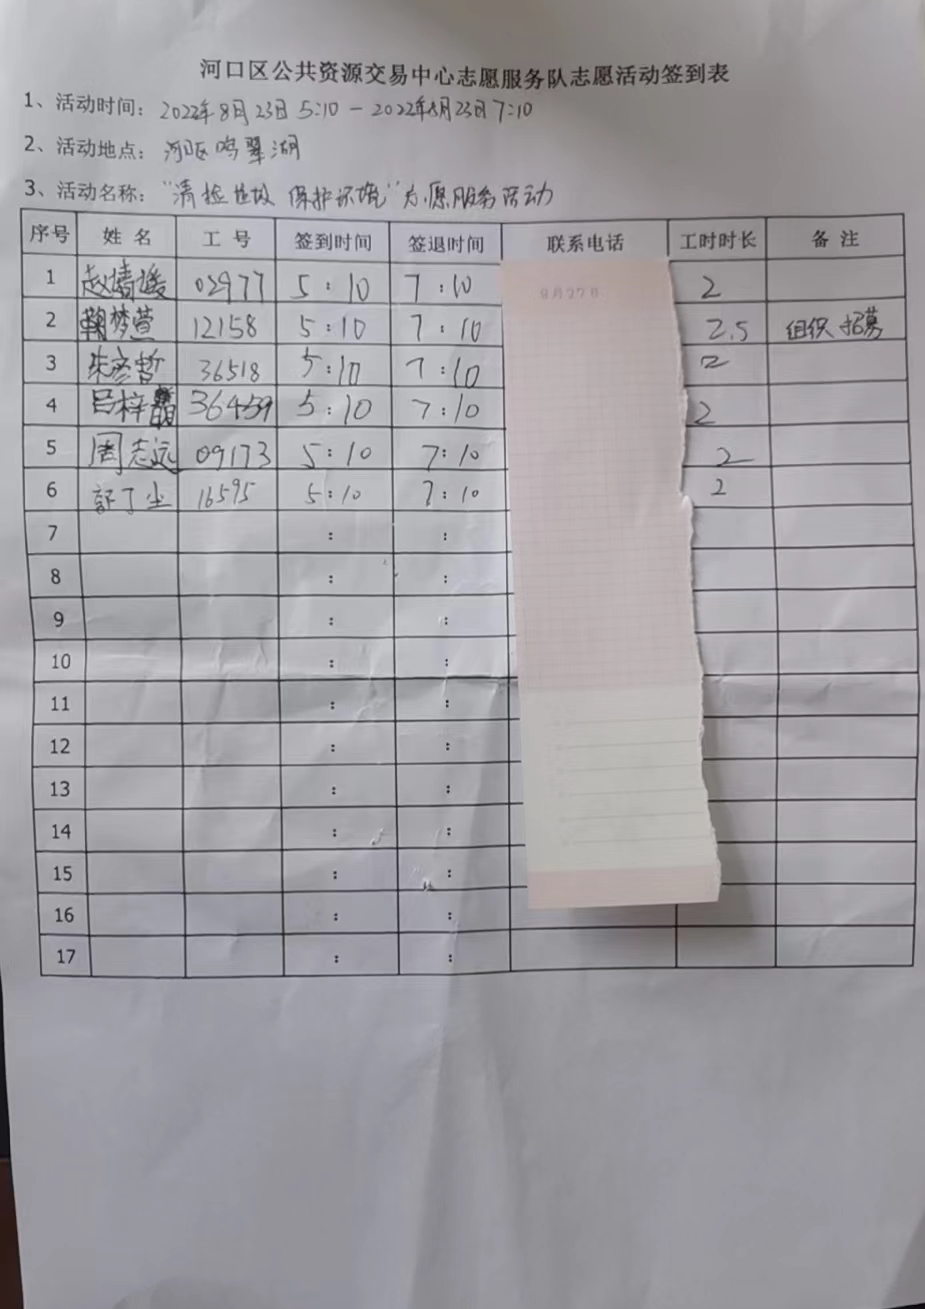 河口区公共资源交易中心志愿服务队志愿活动签到表
1、活动时间：2022年8月23日 5:10 — 2022年8月23日 7:10
2、活动地点：河口区鸣翠湖
3、活动名称：“清捡垃圾 保护环境”志愿服务活动
序号 姓名 工号 签到时间 签退时间 联系电话 工时时长 备注
1 赵婧媛 02977 5:10 7:10 2
2 鞠梦萱 12158 5:10 7:10 2.5 组织招募
3 朱彦哲 36518 5:10 7:10 2
4 吕梓 36459 5:10 7:10 2
5 周志远 09173 5:10 7:10 2
6 丁尘 16595 5:10 7:10 2
7 : :
8 : :
9 : :
10 : :
11 : :
12 : :
13 : :
14 : :
15 : :
16 : :
17 : :